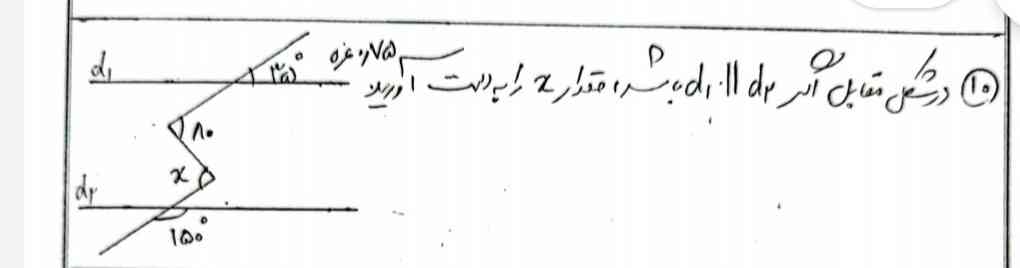 ۱۰ در شکل مقابل اگر d₁ || d₂ باشد، مقدار x را به دست آورید
۷۵/. نمره
d₁
۳۵°
۸۰
x
d₂
۱۵۰°